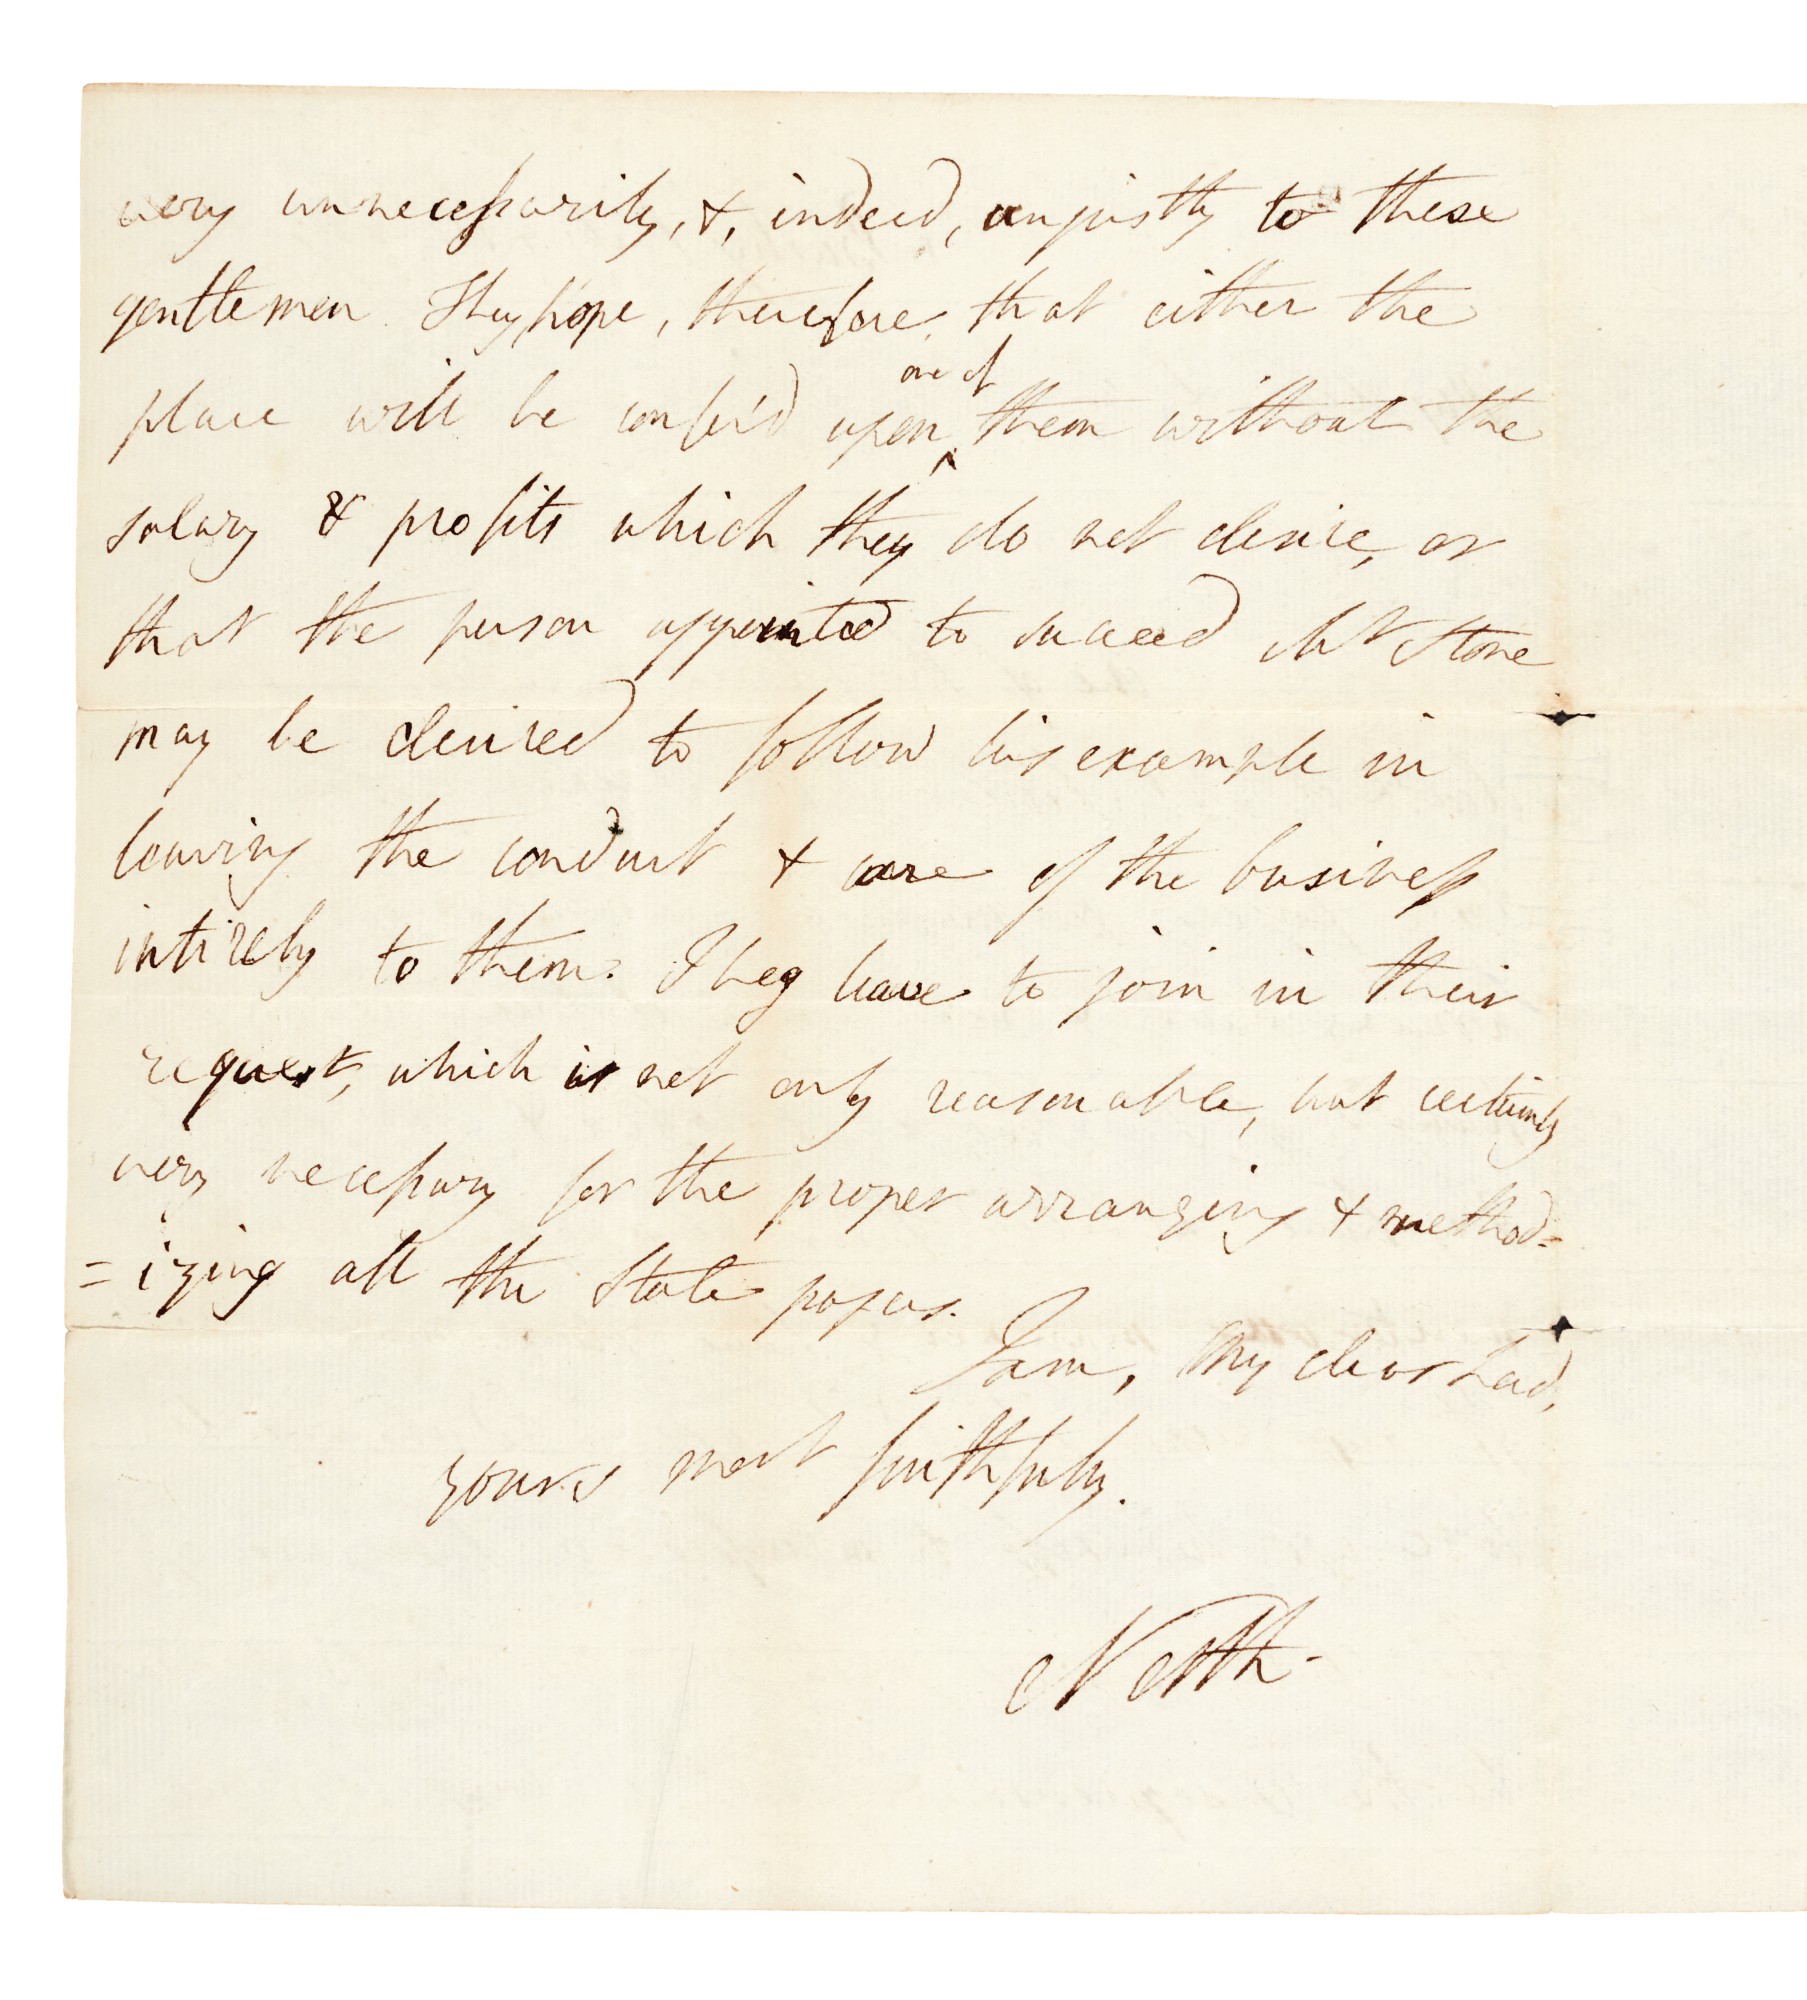 very unnecessarily, &, indeed, unjustly to these
gentlemen. They hope, therefore, that either the
place will be confer'd upon one of them without the
salary & profits which they do not desire, or
that the person appointed to succeed Mr Stone
may be desired to follow his example in
leaving the conduct & care of the business
intirely to them. I beg leave to join in their
request, which is not only reasonable, but certainly
very necessary for the proper arranging & method=
=izing all the State papers.
I am, My dear Lord,
yours most faithfully.
North-